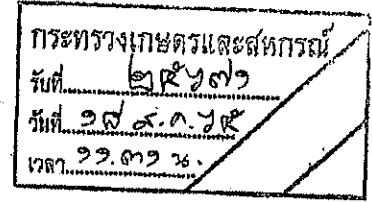 กระทรวงเกษตรและสหกรณ์
รับที่ ๒๕๖๗๑
วันที่ ๑๘ ส.ค. ๖๕
เวลา ๑๑.๓๑ น.